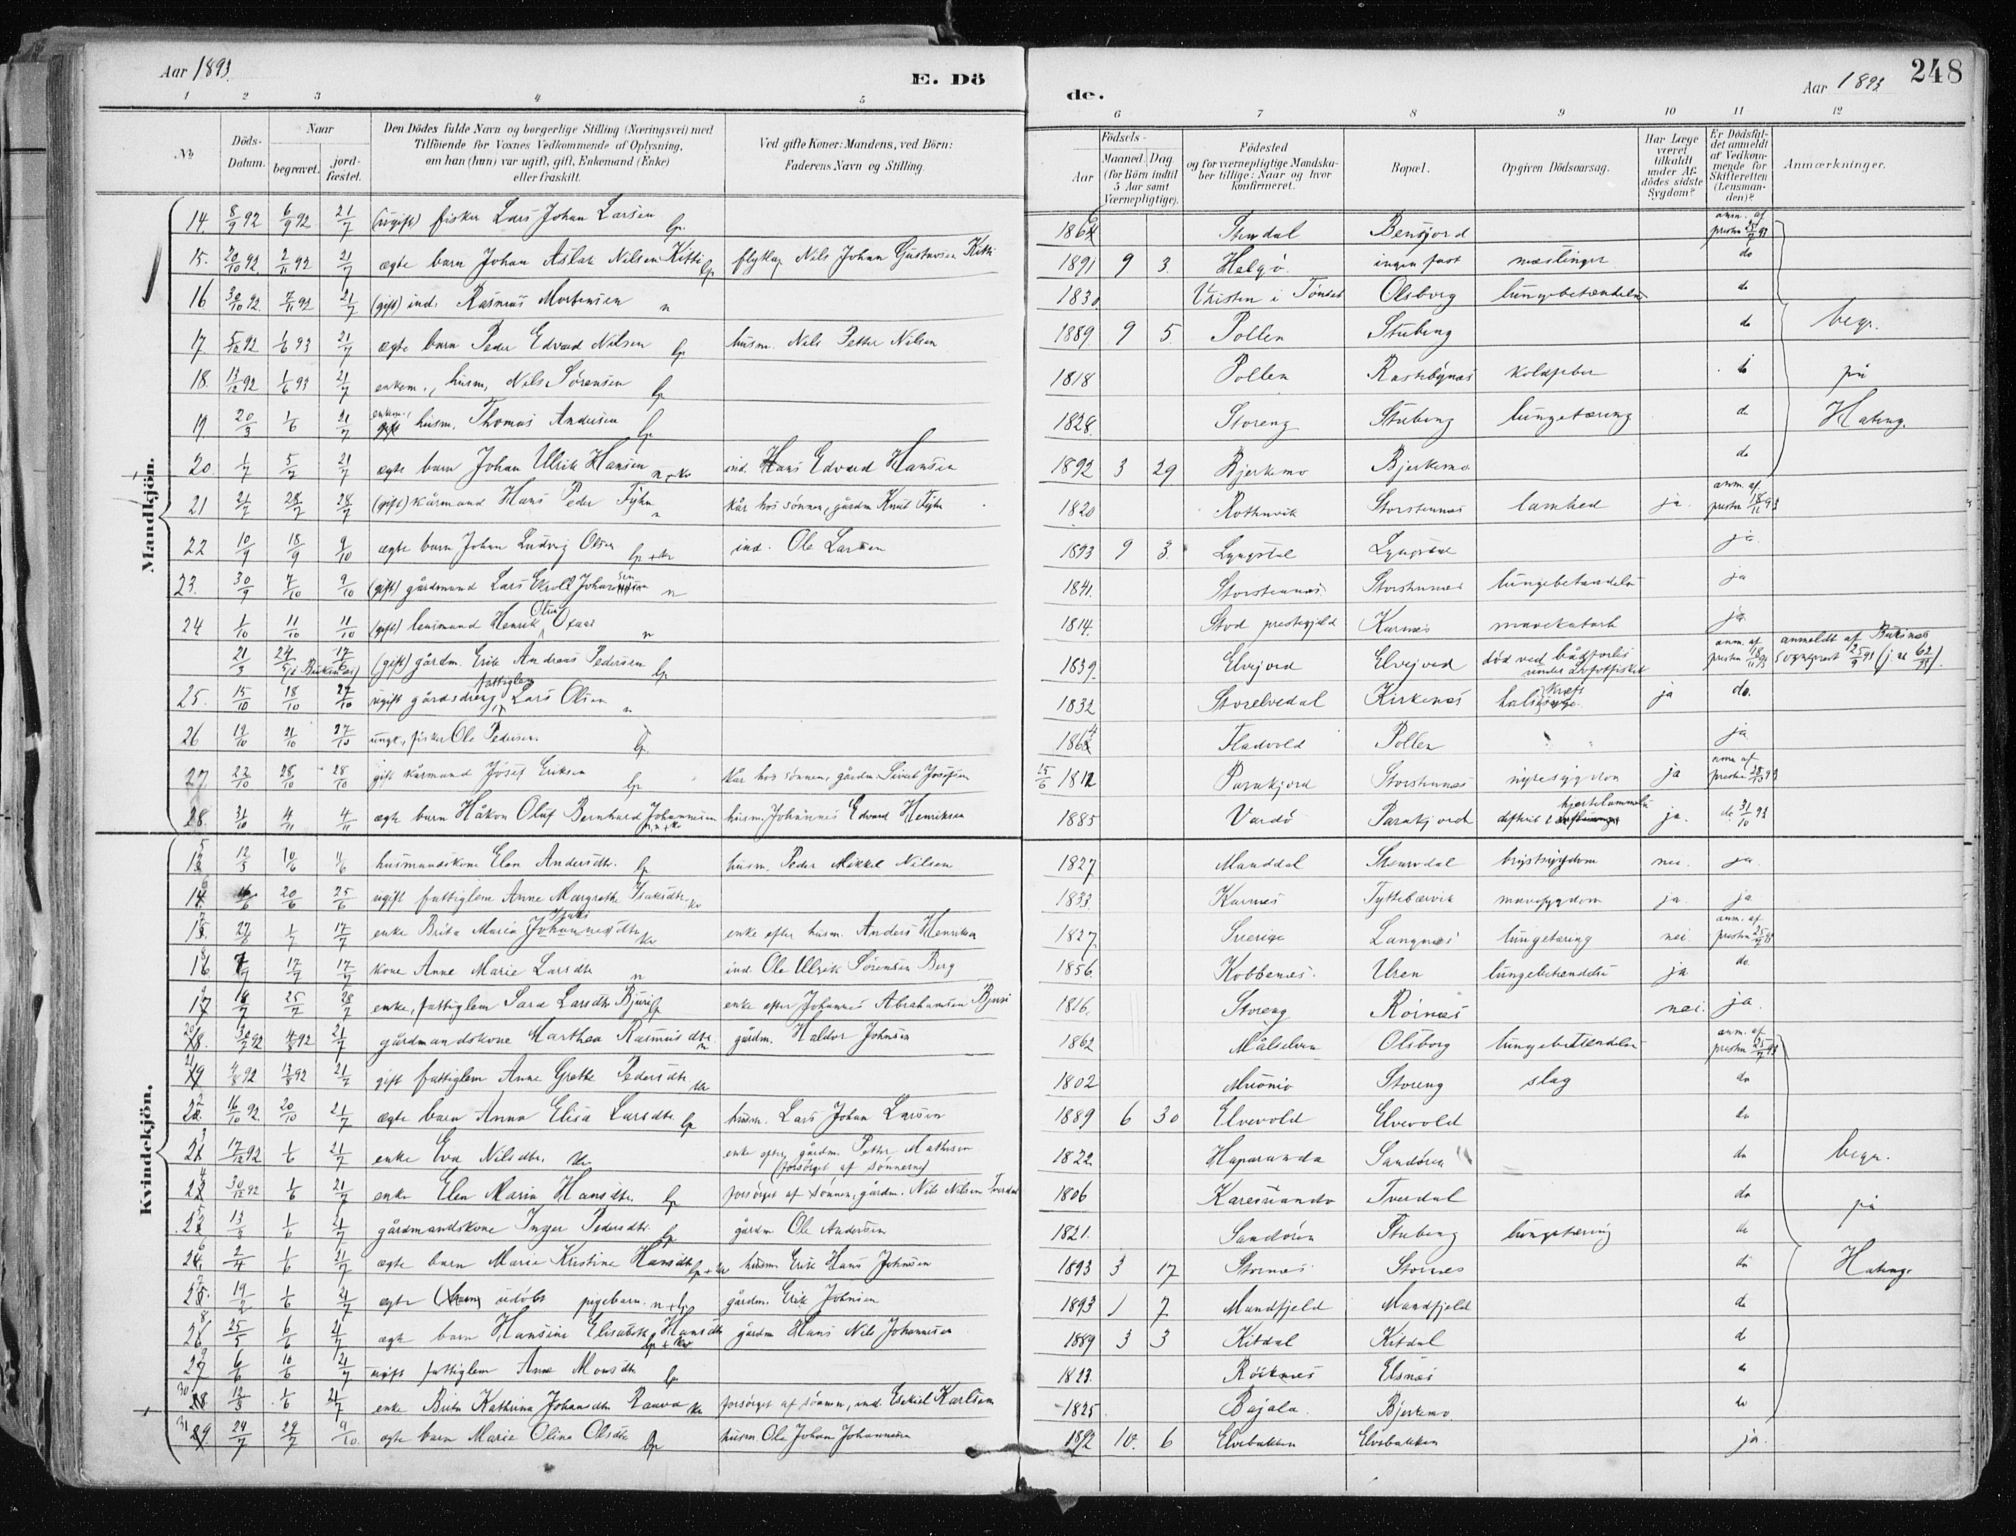 Aar 1893.
E. Dö
de.
Aar 1893
248
1 2 3 4 5 6 7 8 9 10 11 12
№
Döds-Datum.
Naar
begravet.
jord-fæstet.
Den Dödes fulde Navn og borgerlige Stilling (Næringsvei) med Tilföiende for Voxnes Vedkommende af Oplysning, om han (hun) var ugift, gift, Enkemand (Enke) eller fraskilt.
Ved gifte Koner: Mandens, ved Börn: Faderens Navn og Stilling.
Födsels-
Aar
Maaned. Dag
(for Börn indtil 5 Aar samt Værnepligtige).
Födested og for værnepligtige Mandskaber tillige: Naar og hvor konfirmeret.
Bopæl.
Opgiven Dödsaarsag.
Har Læge været tilkaldt under Afdödes sidste Sygdom?
Er Dödsfaldet anmeldt af Vedkommende for Skifteretten (Lensmanden)?
Anmærkninger.
Mandkjön.
14 8/9 92 6/9 92 21/7 (ugift) fisker Lars Johan Larsen lp. 1864 Stordal Bensjord anm. af presten 25/7 93
15. 20/10 92 2/11 92 21/7 ægte barn Johan Aslak Nilsen Kitti lp flytlap Nils Johan Gustavsen Kitti 1891 9 3. Helgö. ingen fast mæslinger do
16 30/10 92 7/11 92 21/7 (gift) ind. Rasmus Mortensen n 1830. Vristen i Tönset Olsborg lungebetændelse do
17 5/12 92 1/6 93 21/7 ægte barn Peder Edvard Nilsen lp husm. Nils Petter Nilsen 1889 9 5 Pollen Stubeng do begr.
18. 13/12 92 1/6 93 21/7 enkem., husm, Nils Sörensen lp 1818 Pollen Rastebynes koldfeber do på
19 20/3 1/6 21/7 enkem., husm. Thomas Andersen lp 1828. Storeng Stubeng lungetæring do Hateng.
20. 1/7 5/7 21/7 ægte barn Johan Ulrik Hansen n+kv ind. Hans Edvard Hansen 1892 3 29 Bjerkemo Bjerkemo do
21 21/7 28/7 28/7 (gift) kårmand Hans Peder Fyhn n kår hos sönnen, gårdm Knut Fyhn 1820 Rothnvik Storstennes lamhed ja. anm. af presten 18/11 93
22 10/9 18/9 9/10 ægte barn Johan Ludvig Olsen lp+kv ind. Ole Larsen 1893 9 3. Lyngsdal Lyngsdal ja
23. 30/9 7/10 9/10 (gift) gårdmand Lars Eroll Johannesen n 1841. Storstennes Storstennes lungebetændelse ja
24 1/10 11/10 11/10 (gift) lensmand Henrik Olsen Oxaas n 1814. Stod prestegjæld Karnes mavekatarh ja.
21/3 24/5 (i Buksnes) 17/6 (gift) gårdm. Erik Andreas Pedersen lp 1839. Elvejord Elvejord död ved bådforlis under Lofotfisket anm. af presten 18/11 93 anmeldt af Buksnes sogneprest 25/9 93 (j. nr 62/93).
25. 15/10 18/10 27/10 ugift gårdsdreng, fattiglem Lars Olsen n 1832 Storelvedal Kirkenes halskræft ja do.
26 13/10 21/10 27/10 ungk., fisker Ole Pedersen lp. 1864 Fladvold Pollen ja
27 22/10 28/10 28/10 gift kårmand Josef Eriksen lp kår hos sönnen, gårdm Sivert Josefsen 25/6 1812 Parakjord Storstennes nyresygdom ja anm. af presten 28/10 93
28. 31/10 4/11 4/11 ægte barn Håkon Oluf Bernhard Johannesen n+kv husm. Johannes Edvard Henriksen 1885 Vardö Parakjord difterit & hjertelammelse ja. do 31/10 93
Kvindekjön.
15 12/3 10/6 11/6 husmandskone Elen Andersdtr. lp husm. Peder Mikkel Nilsen 1827 Manddal Stenrdal brystsygdom nei. ja
16 16/6 20/6 25/6 ugift fattiglem Anne Margrethe Isaksdtr. kv 1833. Karnes Tyttebærvik mavesygdom ja. ja
17 27/6 1/7 17/7 enke Brita Maria Johannesdtr. kv enke efter husm. Anders Henriksen 1827 Sverige Langnes lungetæring nei. anm. af presten 25/7 93
18 7/7 17/7 17/7 kone Anne Marie Larsdtr n ind. Ole Ulrik Sörensen Berg 1856 Kobbenes. Uren lungebetændelse ja do.
19 18/7 25/7 28/7 enke, fattiglem Sara Larsdtr Bjuri lp enke efter Johannes Abrahamsen Bjuri 1816. Storeng Rörnes nei. ja.
20 30/7 92 4/8 92 21/7 gårdmandskone Marthea Rasmusdtr. n gårdm. Haldor Johnsen 1862 Målselven Olsborg lungebetændelse anm. af presten 25/7 93
21 9/8 92 13/8 92 21/7 gift fattiglem Anne Grethe Pedersdtr kv 1802 Muonio Storeng slag do
22 16/10 92 20/10 21/7 ægte barn Anna Elisa Larsdtr. lp husm. Lars Johan Larsen 1889 6 30 Elvevold Elvevold do
23 17/12 92 1/6 21/7 enke Eva Nilsdtr. kv enke efter gårdm. Petter Mathisen (forsörget af sönnerne) 1822 Haparanda Sandören do begr.
24 30/12 92 1/6 21/7 enke Elen Maria Hansdtr. lp forsörget af sönnen, gårdm. Nils Nilsen Tverdal 1806 Karesuando Tverdal do på
25 13/3 1/6 21/7 gårdmandskone Inger Pedersdtr. lp gårdm Ole Andersen 1821. Sandören Stubeng lungetæring do
26 2/4 1/6 21/7 ægte barn Marie Kristine Hansdtr lp+kv husm. Erik Hans Johnsen 1893 3 17 Stornes Stornes do Hateng.
27 19/2 1/6 21/7 ægte udöbt pigebarn. n+lp gårdm. Erik Johnsen 1893 1 7 Mandfjeld Mandfjeld do
28 25/5 6/6 21/7 ægte barn Hansine Elisabeth Hansdtr lp+kv gårdm Hans Nils Johannesen 1889 3 3 Kitdal Kitdal do
29 6/6 10/6 21/7 ugift fattiglem Ane Monsdtr lp 1823. Röiknes Elsnes do
30 13/3 1/6 21/7 enke Brita Kathrina Johansdtr Rauva kv forsörget af sönnen, ind. Esekiel Karlsen 1825 Bajala. Bjerkemo do
31 24/7 29/7 9/10. ægte barn Marie Oline Olsdtr lp husm. Ole Johan Johannesen 1892 10. 6 Elvebakken Elvebakken ja.